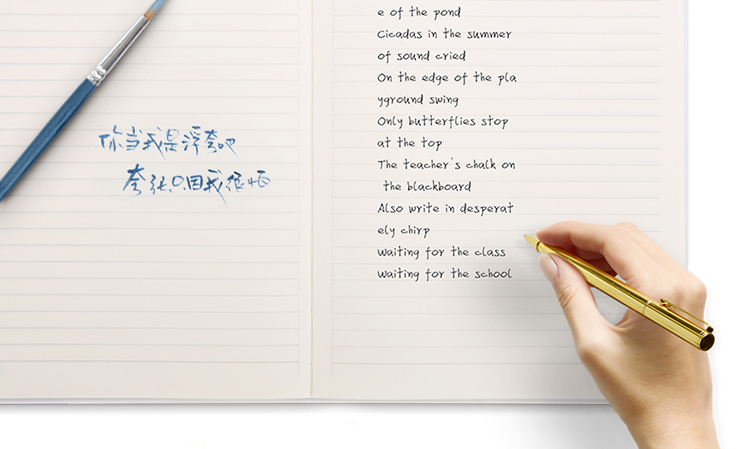 你当我是浮夸吧
夸张只因我很怕
e of the pond
Cicadas in the summer
of sound cried
On the edge of the pla
yground swing
Only butterflies stop
at the top
The teacher's chalk on
the blackboard
Also write in desperat
ely chirp
Waiting for the class
Waiting for the school